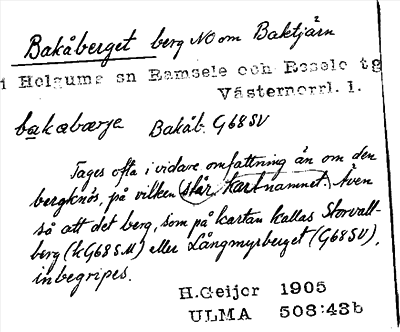 Bakåberget berg NO om Baktjärn
i Helgums sn Ramsele och Resele tg
Västernorrl. l.
bakabærje Bakåb. G68SV
Tages ofta i vidare omfattning än om den
bergknös, på vilken står kartnamnet. Även
så att det berg, som på kartan kallas Storvall-
berg (kG68SM) eller Långmyrberget (G68SV),
inbegripes.
H.Geijer 1905
ULMA 508:43b